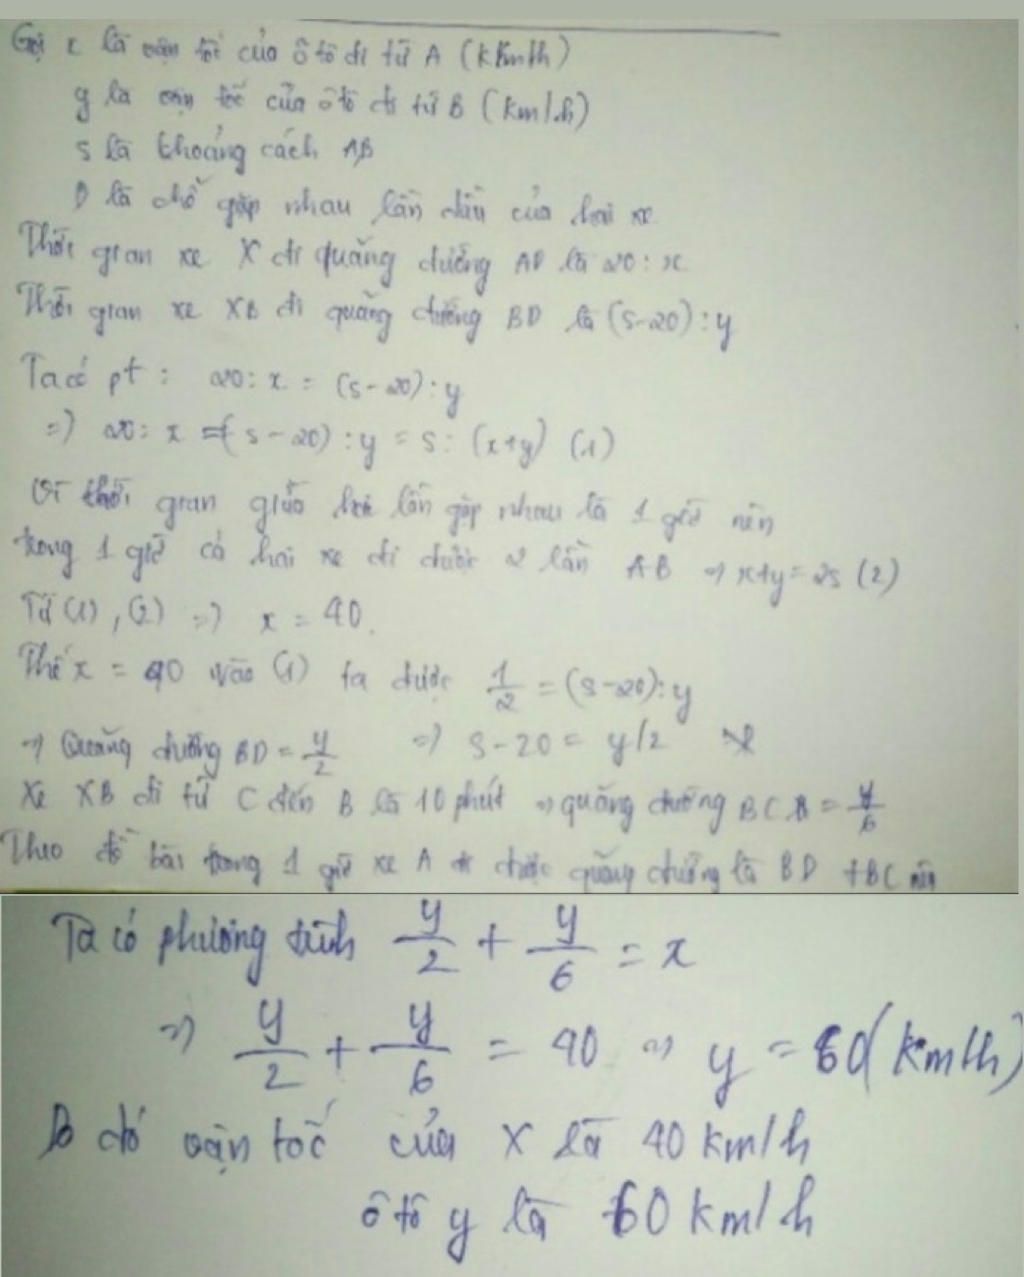 Gọi x là vận tốc của ô tô đi từ A (km/h)
y là vận tốc của ô tô đi từ B (km/h)
s là khoảng cách AB
D là chỗ gặp nhau lần đầu của hai xe
Thời gian xe X đi quãng đường AD là 20 : x
Thời gian xe XB đi quãng đường BD là (s-20) : y
Ta có pt : 20 : x = (s-20) : y
=> 20 : x = (s-20) : y = s : (x+y) (1)
Vì thời gian giữa hai lần gặp nhau là 1 giờ nên
trong 1 giờ cả hai xe đi được 2 lần AB => x+y = 2s (2)
Từ (1), (2) => x = 40.
Thế x = 40 vào (1) ta được 1/2 = (s-20) : y
=> Quãng đường BD = y/2 => s-20 = y/2
Xe XB đi từ C đến B là 10 phút => quãng đường BC = y/6
Theo đề bài trong 1 giờ xe A đi được quãng đường là BD + BC nên
Ta có phương trình y/2 + y/6 = x
=> y/2 + y/6 = 40 => y = 60 (km/h)
Do đó vận tốc của X là 40 km/h
ô tô y là 60 km/h